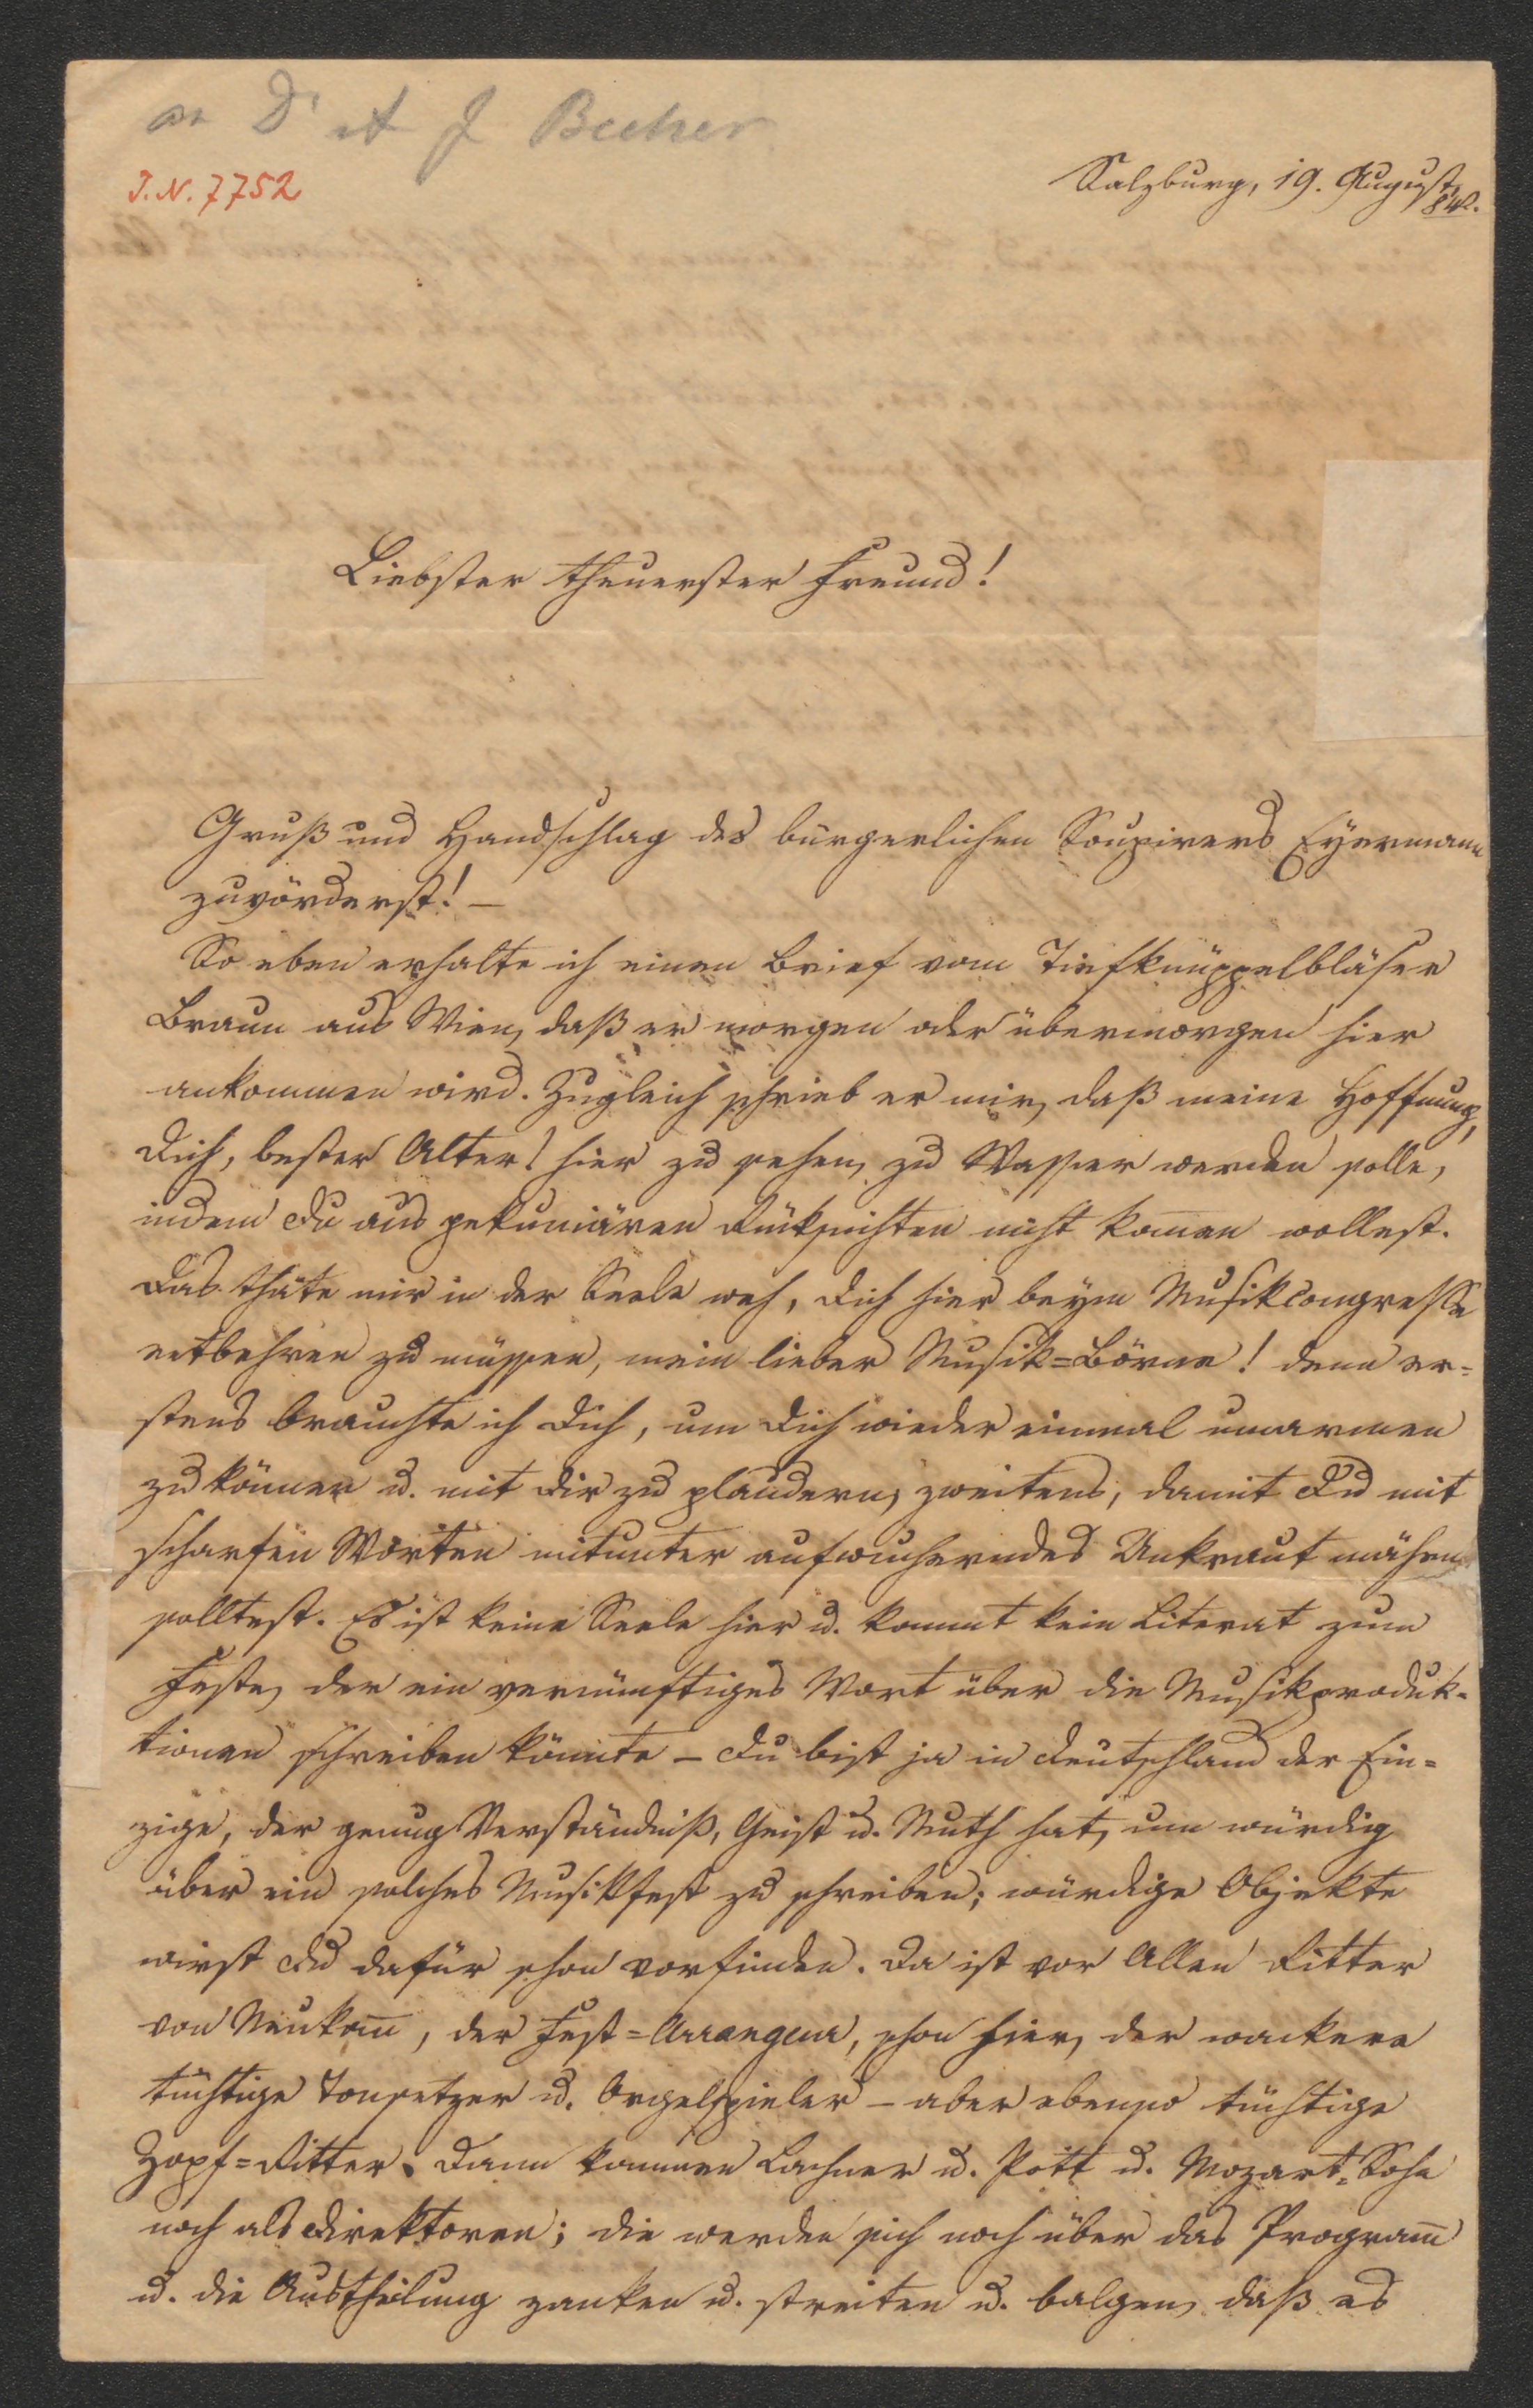 an Dr A J Becher
J.N. 7752
Salzburg, 19. August,
842.
Liebster theuerster Freund!
Gruß und Handschlag des bürgerlichen Soupirers Eyermann
zuvörderst! –
So eben erhalte ich einen Brief vom Tiefknüppelbläser
Braun aus Wien, daß er morgen oder übermorgen hier
ankommen wird. Zugleich schrieb er mir, daß meine Hoffnung,
Dich, bester Alter! hier zu sehen, zu Wasser werden solle,
indem Du aus pekuniären Rüksichten nicht kom̄en wollest.
Das thäte mir in der Seele weh, Dich hier beym Musikcongresse
entbehren zu müssen, mein lieber Musik=Börne! denn er=
stens brauchte ich Dich, um Dich wieder einmal umarmen
zu können u. mit Dir zu plaudern, zweitens, damit Du mit
scharfen Worten mitunter aufwucherndes Unkraut mähen
solltest. Es ist keine Seele hier u. kommt kein Literat zum
Feste, der ein vernünftiges Wort über die Musikproduk=
tionen schreiben könnte – Du bist ja in Deutschland der Ein=
zige, der genug Verständniß, Geist u. Muth hat, um würdig
über ein solches Musikfest zu schreiben; würdige Objekte
wirst Du dafür schon vorfinden. Da ist vor Allen Ritter
von Neukom̄, der Fest=Arrangeur, schon hier, der wackere
tüchtige Tonsetzer u. Orgelspieler – aber ebenso tüchtige
Zopf=Ritter. Dann kommen Lachner u. Pott u. Mozart=Sohn
noch als Direktoren; die werden sich noch über das Program̄
u. die Austheilung zanken u. streiten u. balgen, daß es